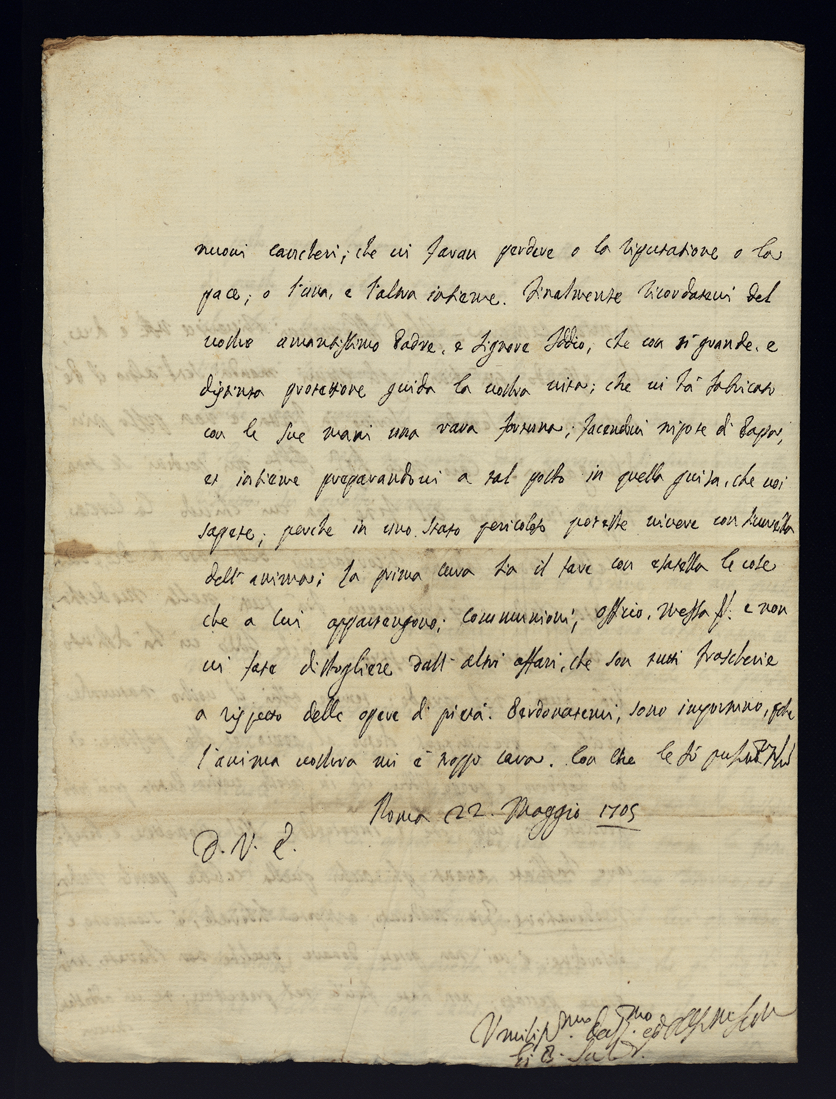 nuovi caricheri; che vi faran perdere o la riputatione o la
pace; o l'una, e l'altra insieme. Finalmente ricordatevi del
vostro amantissimo Padre, e Signore Iddio, che con sì grande, e
distinta protettione guida la vostra vita; che vi hà fabricato
con le sue mani una rara fortuna; facendovi nipote di Papa;
et insieme preparandovi a tal posto in quella guisa, che voi
sapete; perche in uno stato pericoloso poteste vivere con
dell'anima; la prima cura sia il fare con esattezza le cose
che a lui appartengono; Communioni, officio, Messa e non
vi fate distogliere dall'altri affari, che son tutti frascherie
a rispetto delle opere di pietà. Perdonatemi, sono importuno, perche
l'anima vostra mi è troppo cara. Con che le fò
Roma 22. Maggio 1705
D. V. E.
Umiliss.mo Dev.mo ed